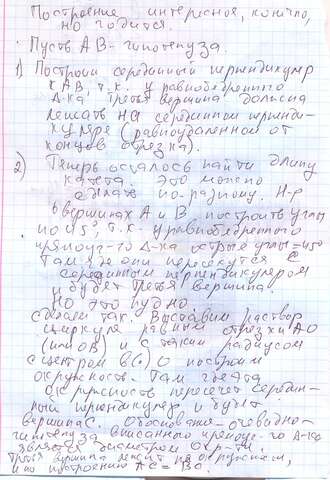 Построение интересное, конечно,
но годится.
Пусть AB - гипотенуза.
1) Построим серединный перпендикуляр
к AB, т.к. у равнобедренного
Δ-ка третья вершина должна
лежать на серединном перпенди-
куляре (равноудаленном от
концов отрезка).
2) Теперь осталось найти длину
катета. Это можно
сделать по-разному. Н-р
в вершинах A и B построить углы
по 45°, т.к. у равнобедренного
прямоуг-го Δ-ка острые углы =45°
Там где они пересекутся с
серединным перпендикуляром
и будет третья вершина.
Но это нудно.
Сделаем так. Выставим раствор
циркуля равным отрезку AO
(или OB) и с таким радиусом
с центром в (·) O построим
окружность. Там где эта
окружность пересечет середин-
ный перпендикуляр и будет
вершина C. Обоснование - очевидно -
гипотенуза вписанного прямоуг-го Δ-ка
является диаметром окр-ти,
третья вершина лежит на окружности,
и по построению AC = BC.